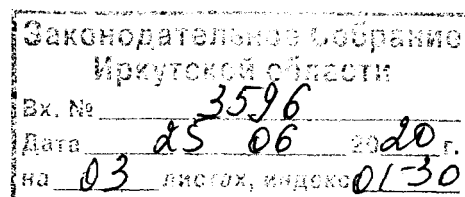 Законодательное Собрание
Иркутской области
Вх. № 3596
Дата 25 06 2020 г.
на 03 листах, индекс 01-30